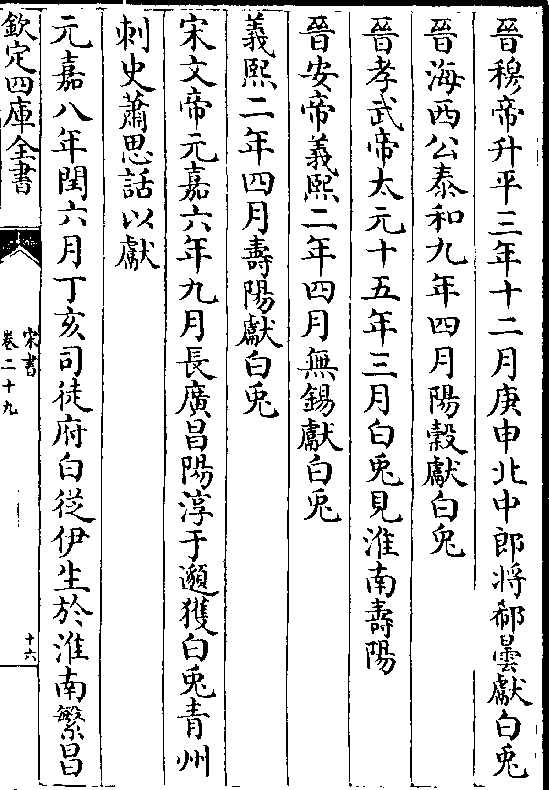 晉穆帝升平三年十二月庚申北中郎將郗曇獻白兎
晉海西公泰和九年四月陽榖獻白兎
晉孝武帝太元十五年三月白兎見淮南壽陽
晉安帝義熙二年四月無錫獻白兎
義熙二年四月壽陽獻白兎
宋文帝元嘉六年九月長廣昌陽淳于邈獲白兎青州
刺史蕭思話以獻
元嘉八年閏六月丁亥司徒府白從伊生於淮南繁昌
欽定四庫全書
宋書
卷二十九
十六